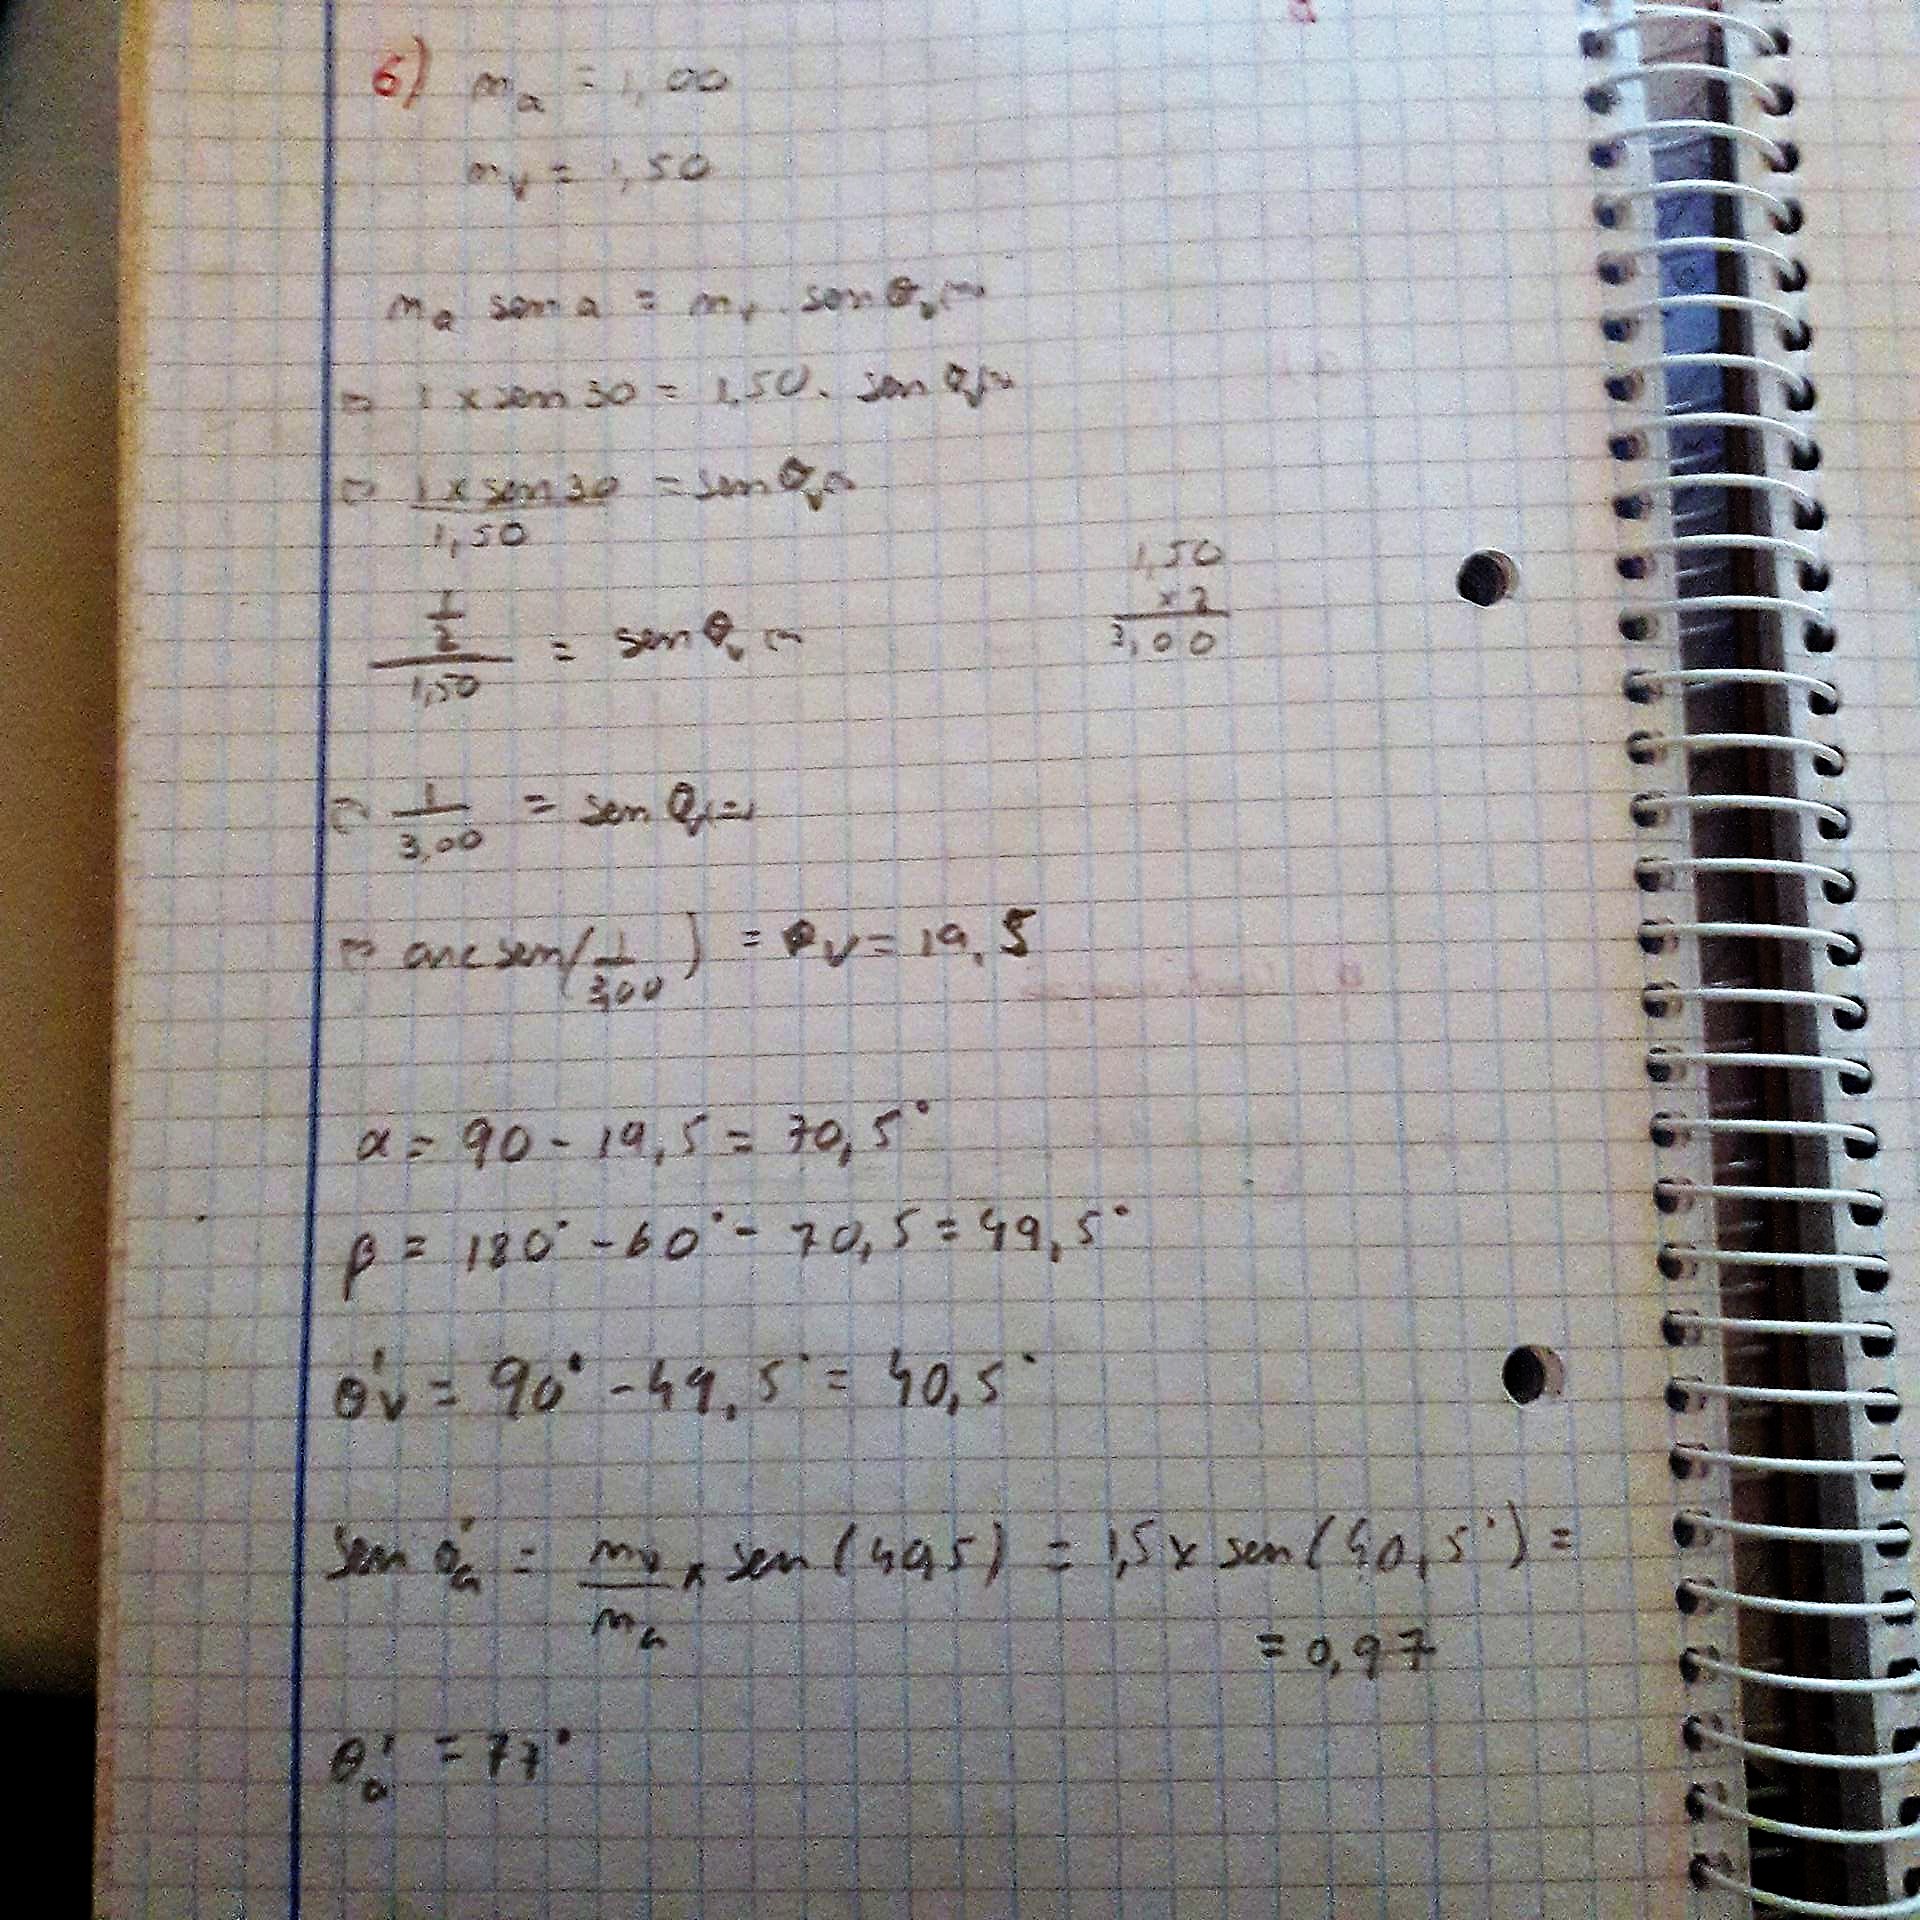 6) na = 1,00
nv = 1,50
na sen a = nv . sen θv (=)
(=) 1 x sen 30 = 1,50 . sen θv (=)
(=) 1 x sen 30 / 1,50 = sen θv (=)
1/2 / 1,50 = sen θv (=)
1,50
x 2
3,00
(=) 1/3,00 = sen θv (=)
(=) arc sen (1/3,00) = θv = 19,5
α = 90 - 19,5 = 70,5°
β = 180° - 60° - 70,5 = 49,5°
θ'v = 90° - 49,5° = 40,5°
sen θ'a = nv/na x sen (40,5) = 1,5 x sen (40,5°) =
= 0,97
θ'a = 77°